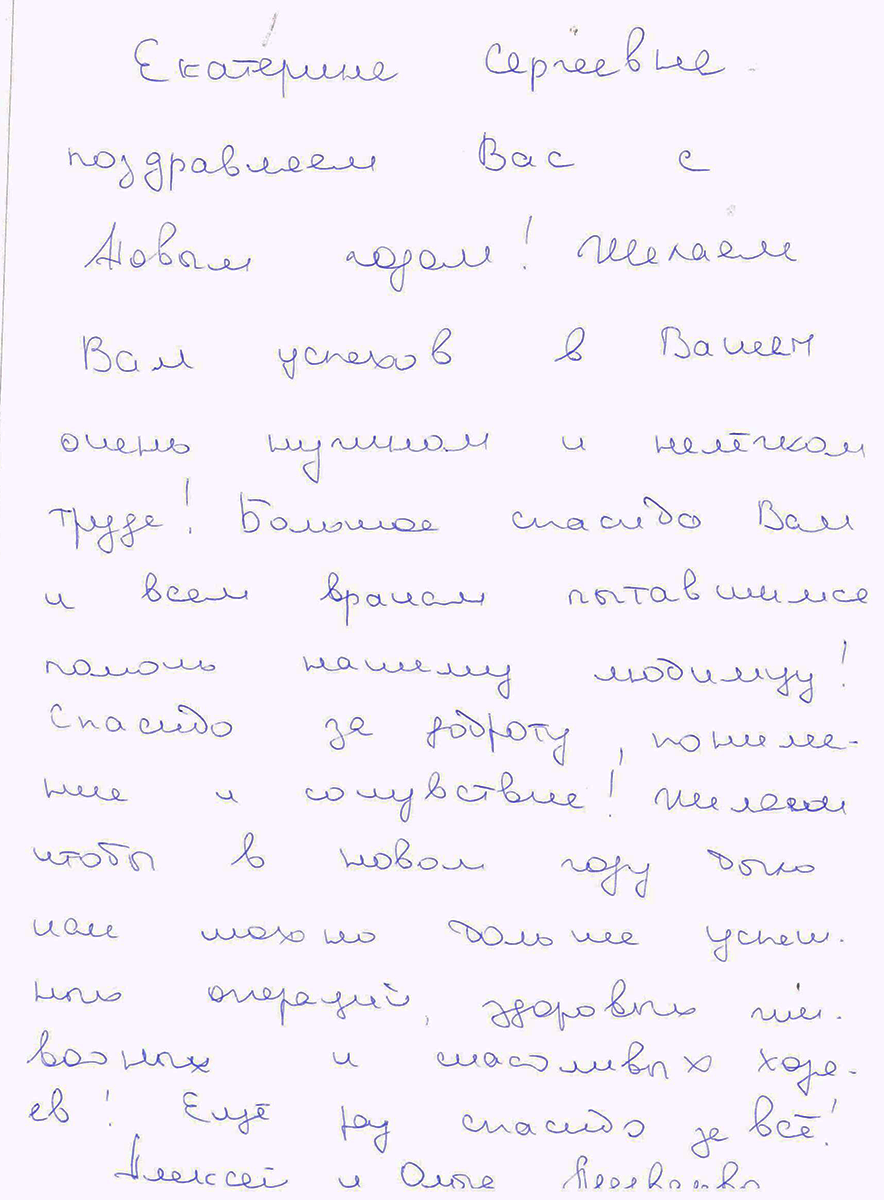 Екатерине Сергеевне
поздравляем Вас с
Новым годом! Желаем
Вам успехов в Вашем
очень нужном и нелёгком
труде! Большое спасибо Вам
и всем врачам пытавшимся
помочь нашему любимцу!
Спасибо за доброту, понима-
ние и сочувствие! Желаем
чтобы в новом году было
как можно больше успеш-
ных операций, здоровых жи-
вотных и счастливых хозя-
ев! Ещё раз спасибо за всё!
Алексей и Ольга